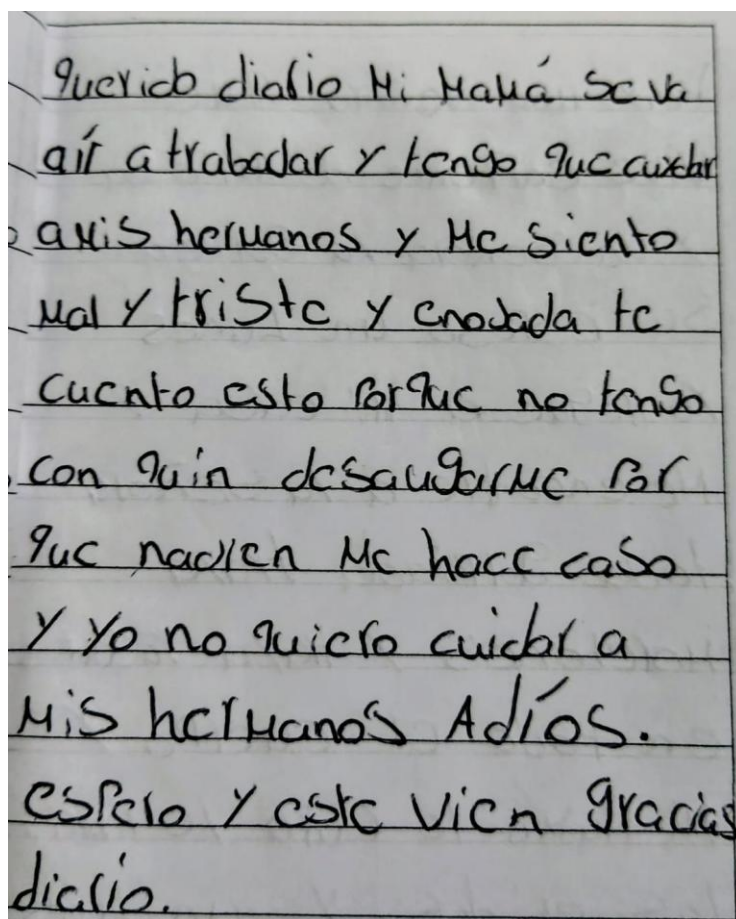 querido diario Mi Mamá se va
aír a trabadar y tengo que cuidar
amis hermanos y Me siento
Mal y triste y enodada te
cuento esto Porque no tengo
con quin desaugarme Por
que nadien Me hace caso
y yo no quiero cuidar a
Mis hermanos Adíos.
espero y este vien gracias
diario.